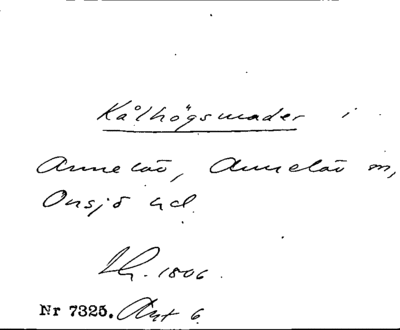 Kålhögsmader i
Annelöv, Annelöv sn,
Onsjö hd.
LH. 1806.
Nr 7325. Akt 6